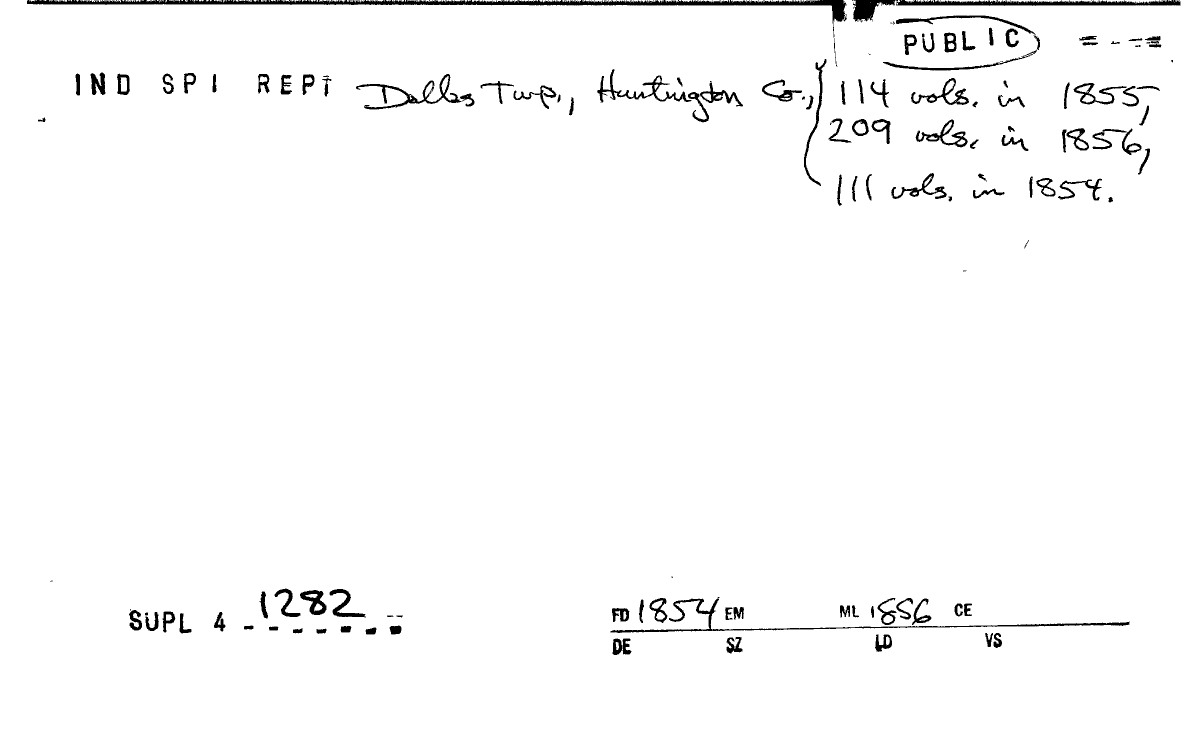 PUBLIC
IND SPI REPT Dallas Twp., Huntington Co., 114 vols. in 1855,
209 vols. in 1856,
111 vols. in 1854.
SUPL 4 1282
FD 1854 EM ML 1856 CE
DE SZ LD VS